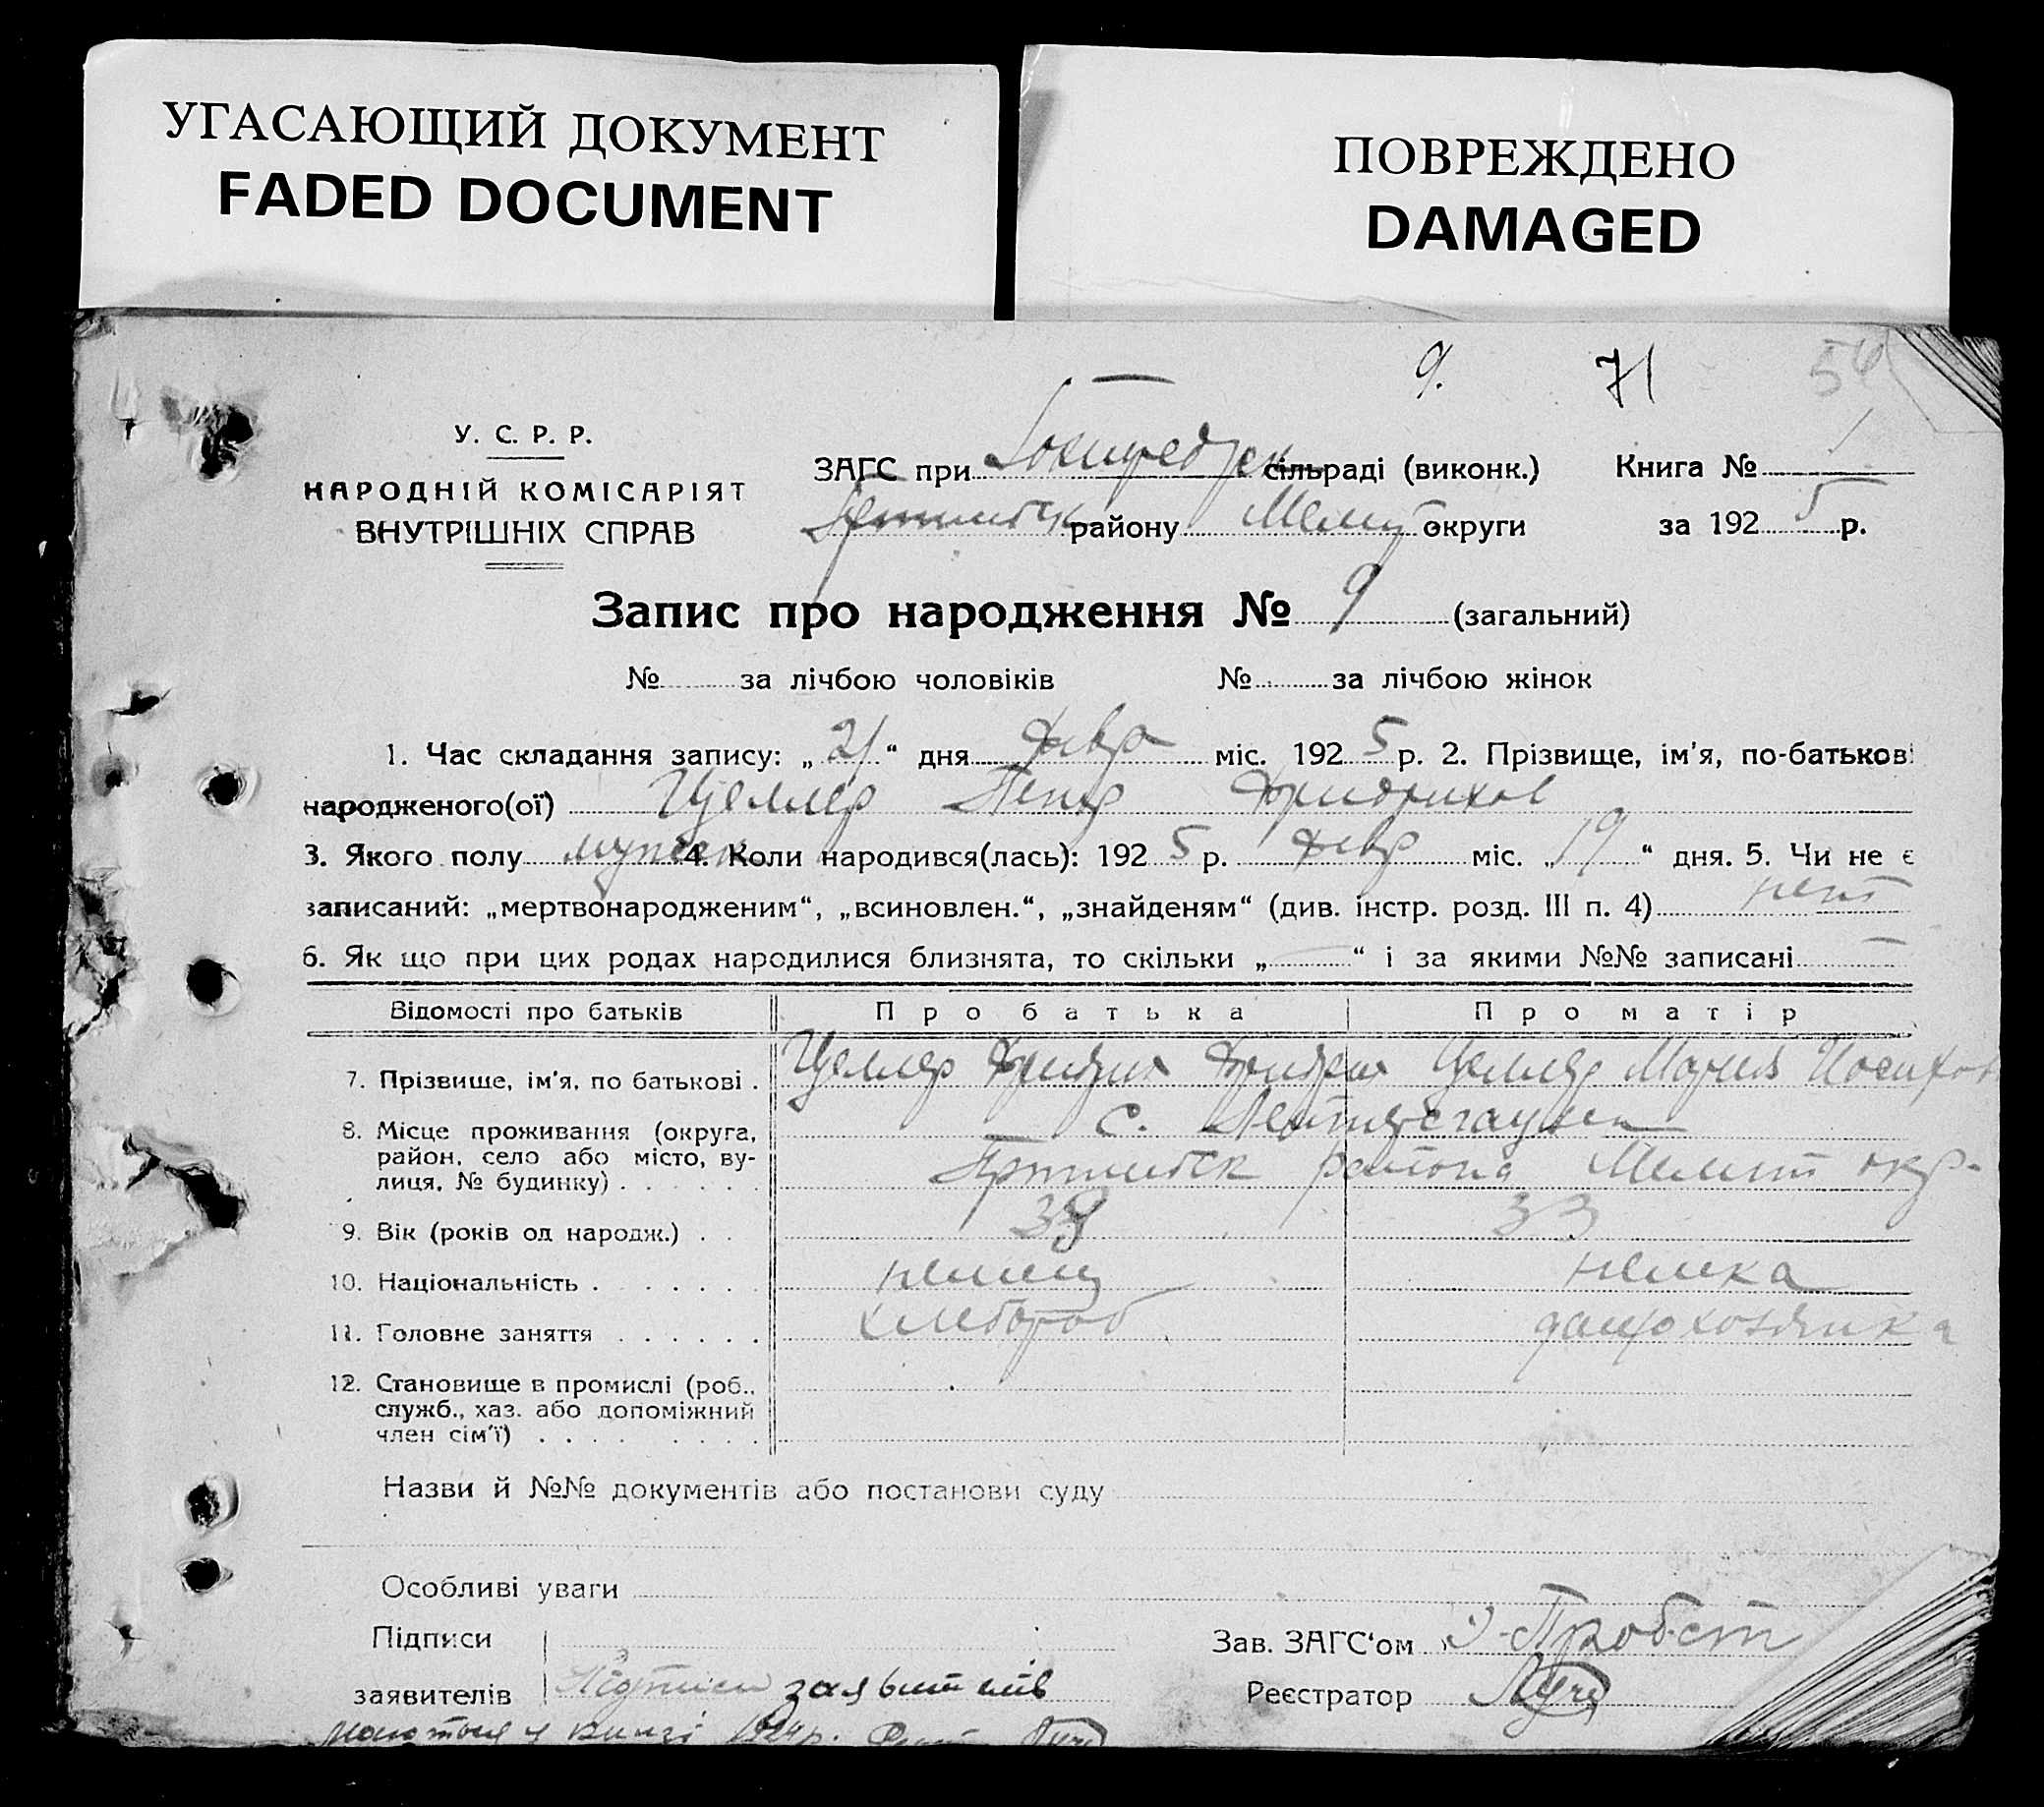 УГАСАЮЩИЙ ДОКУМЕНТ
FADED DOCUMENT
ПОВРЕЖДЕНО
DAMAGED
9. 71 54
У. С. Р. Р.
НАРОДНІЙ КОМІСАРІЯТ
ВНУТРІШНІХ СПРАВ
ЗАГС при сільраді (виконк.) Книга № 1
району Мелит округи за 1925 р.
Запис про народження № 9 (загальний)
№ за лічбою чоловіків № за лічбою жінок
1. Час складання запису: „21“ дня февр міс. 1925 р. 2. Прізвище, ім'я, по-батькові
народженого(ої) Целлер Петр Фридрихов
3. Якого полу мужск 4. Коли народився(лась): 1925 р. февр міс. „19“ дня. 5. Чи не є
записаний: „мертвонародженим“, „всиновлен.“, „знайденям“ (див. інстр. розд. III п. 4) нет
6. Як що при цих родах народилися близнята, то скільки „ “ і за якими №№ записані —
Відомості про батьків Про батька Про матір
7. Прізвище, ім'я, по батькові . Целлер Фридрих Фридрих Целлер Мария Иосифов
8. Місце проживання (округа, с.
район, село або місто, ву-
лиця, № будинку) . . . . . . Пришибск района Мелит окр.
9. Вік (років од народж.) . . 33
10. Національність . . . . . . немец немка
11. Головне заняття . . . . . . хлебороб домохозяйка
12. Становище в промислі (роб.,
служб., хаз. або допоміжний
член сім'ї) . . . . . . . .
Назви й №№ документів або постанови суду
Особливі уваги
Підписи Зав. ЗАГС'ом Пробст
заявителів Підписи заявителів Реєстратор
у книзі 1924 р.